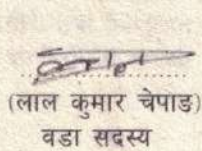 (लाल कुमार चेपाङ)
वडा सदस्य